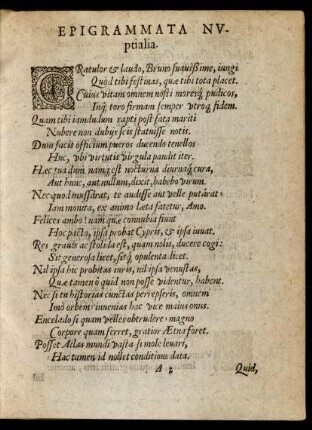 EPIGRAMMATA NV-
ptialia.
GRatulor & laudo, Bruno suauißime, iungi
Quòd tibi festinas, quæ tibi tota placet.
Cuius vitam omnem nosti moresq́; pudicos,
Inq́; toro firmam semper vtroq; fidem.
Quam tibi iamdudum rapti post fata mariti
Nubere non dubijs scis statuisse notis.
Dum facis officium pueros ducendo tenellos
Huc, vbi virtutis virgula pandit iter.
Hæc tua dum namq; est nocturna diurnaq́; cura,
Aut hunc, aut nullum, dixit, habebo virum.
Nec quod mussârat, te audisse aut velle putârat:
Iam monita, ex animo læta fatetur, Amo.
Felices ambo! nam quæ connubia fiunt
Hoc pacto, ipsa probat Cypris, & ipsa iuuat.
Res grauis ac stolida est, quam nolis, ducere cogi:
Sit generosa licet, sitq́; opulenta licet.
Nil ipsa hic probitas iuris, nil ipsa venustas,
Quæ tamen ô quid non posse videntur, habent.
Nec si tu historias cunctas peruesperis, omnem
Imò orbem: inuenias hac vice maius onus.
Encelado si quam velles obtrudere: magno
Corpore quam ferret, gratior Ætna foret.
Posset Atlas mundi vasta si mole leuari,
Hac tamen id nollet conditione data.
A 2 Quid,